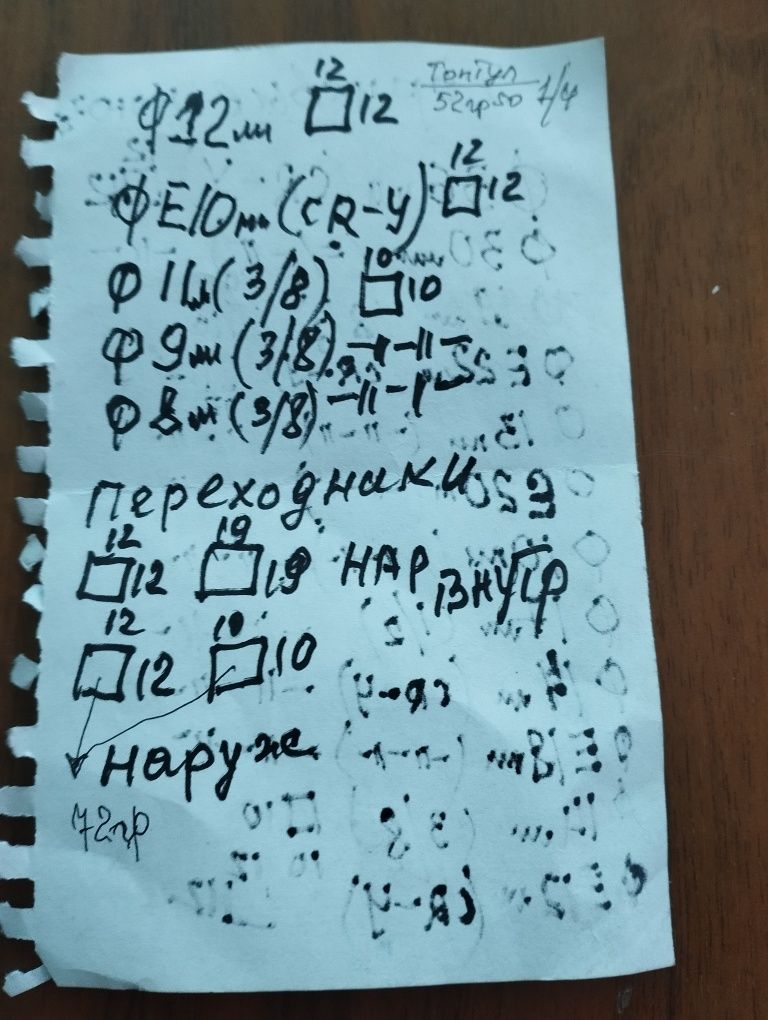 Топтул
52гр50 1/4
12
Ф12мм □12
12
ФЕ10мм (CR-У) □12
10
Ф 11м (3/8) □10
Ф 9мм (3/8) -11-11-
Ф 8м (3/8) -11-1-
Переходники
12 19
□12 □19 НАР ВНУТР
12 10
□12 □10
наруж
72гр